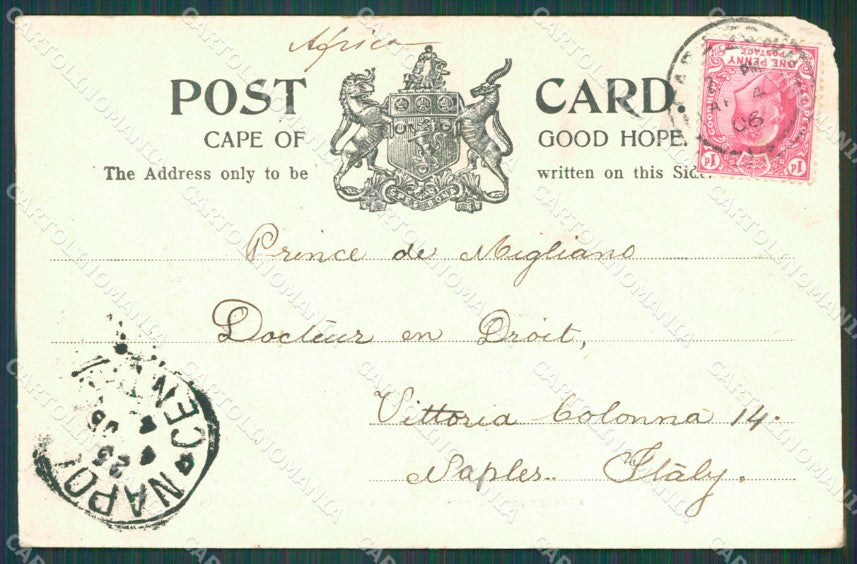 Africa
POST CARD.
CAPE OF GOOD HOPE.
The Address only to be written on this Side.
ONE PENNY
POSTAGE
1d 1d
PM
4
06
Prince de Migliano
Docteur en Droit,
Vittoria Colonna 14.
Naples. Italy.
NAPOLI
CENT
23
CARTOLINOMANIA